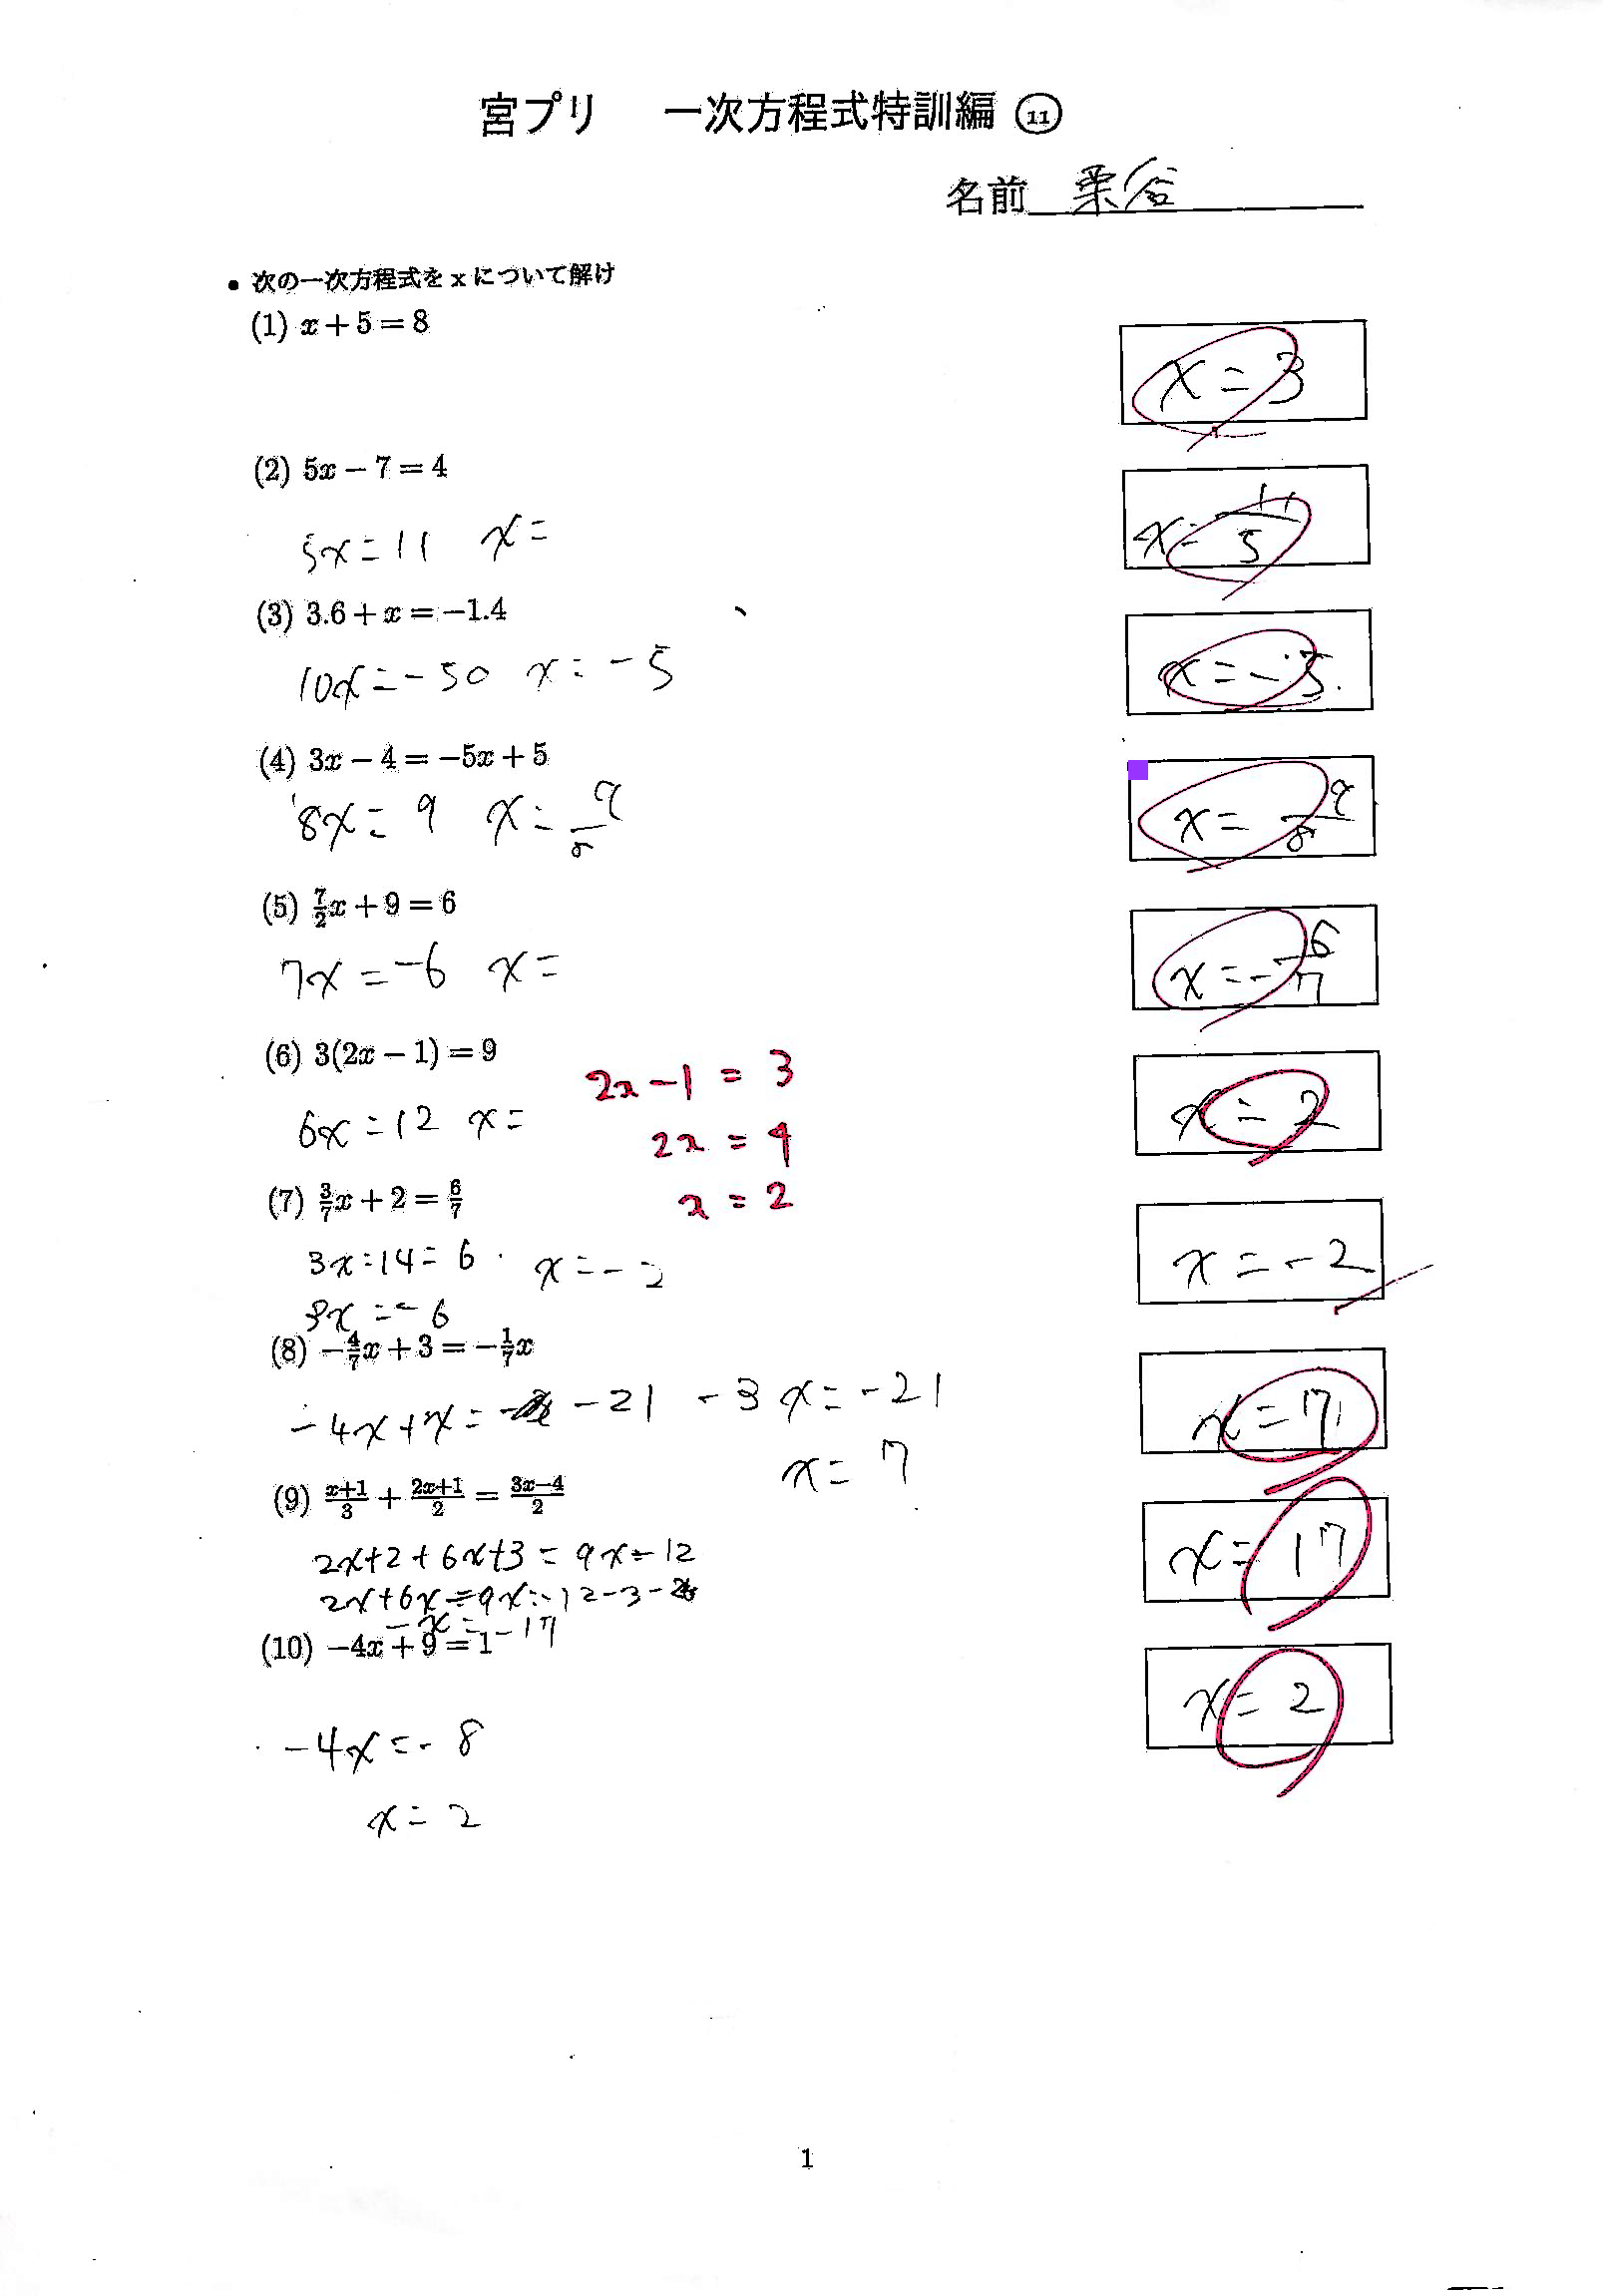 宮プリ 一次方程式特訓編 ⑪
名前 栗谷
• 次の一次方程式をxについて解け
(1) x + 5 = 8
x = 3
(2) 5x − 7 = 4
5x = 11 x =
x = 11/5
(3) 3.6 + x = −1.4
10x = −50 x = −5
x = −5.
(4) 3x − 4 = −5x + 5
8x = 9 x = 9/8
x = 9/8
(5) 7/2x + 9 = 6
7x = −6 x =
x = −6/7
(6) 3(2x − 1) = 9
6x = 12 x =
2x − 1 = 3
2x = 4
x = 2
x = 2
(7) 3/7x + 2 = 6/7
3x = 14 = 6 x = −2
3x = −6
x = −2
(8) −4/7x + 3 = −1/7x
−4x + x = −21 −3x = −21
x = 7
x = 7
(9) x+1/3 + 2x+1/2 = 3x−4/2
2x + 2 + 6x + 3 = 9x − 12
2x + 6x = 9x = −12 − 3 − 2
−x = −17
x = 17
(10) −4x + 9 = 1
−4x = −8
x = 2
x = 2
1